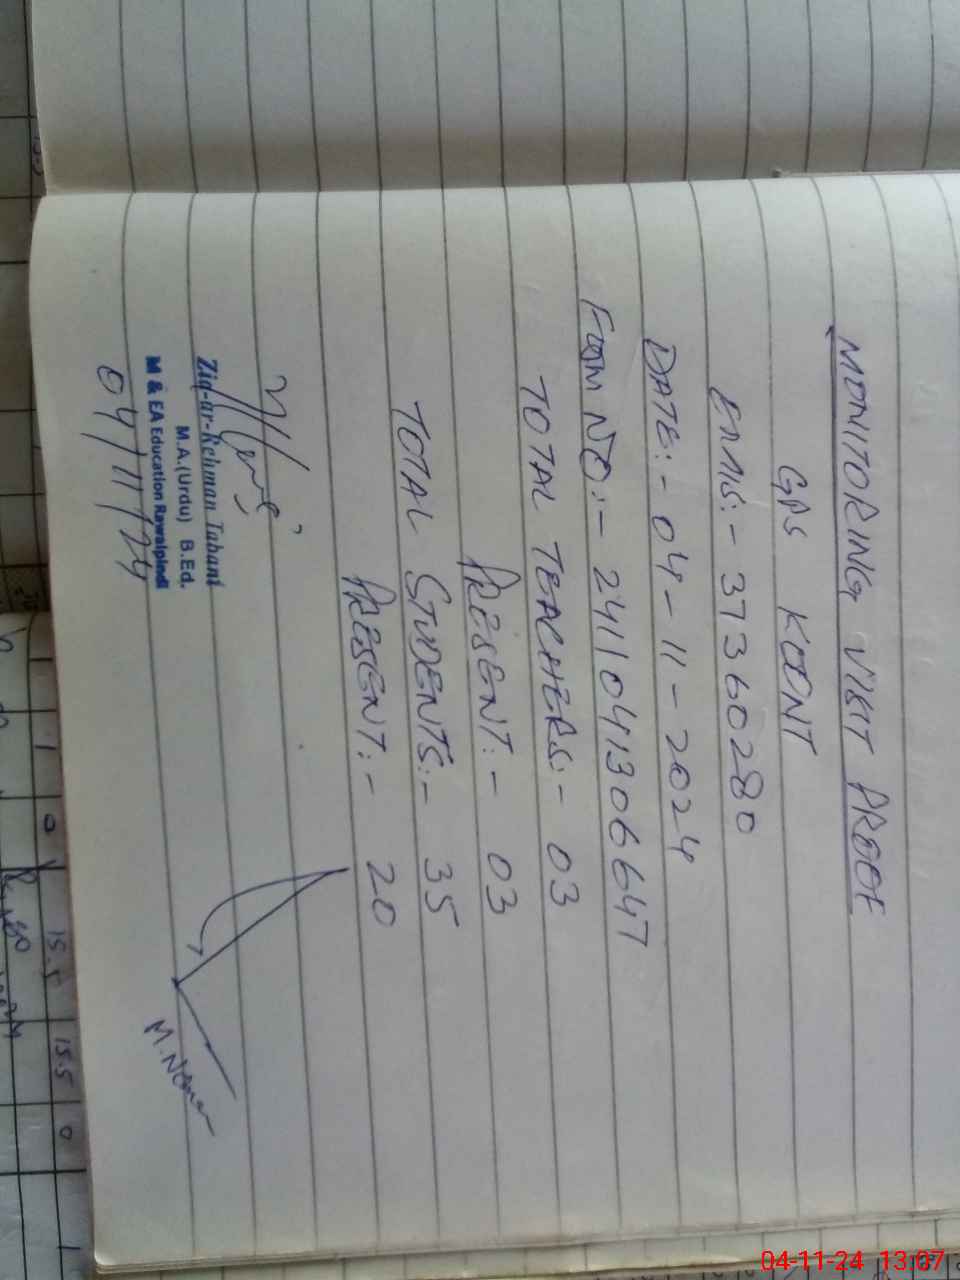 MONITORING VISIT PROOF
GPS KOONT
EMIS:- 37360280
DATE:- 04-11-2024
FORM NO:- 2411041306647
TOTAL TEACHERS:- 03
PRESENT:- 03
TOTAL STUDENTS:- 35
PRESENT:- 20
Zia-ur-Rehman Tabani
M.A.(Urdu) B.Ed.
M & EA Education Rawalpindi
04/11/24
M.Noman
15.5
15.5 0
04-11-24 13:07